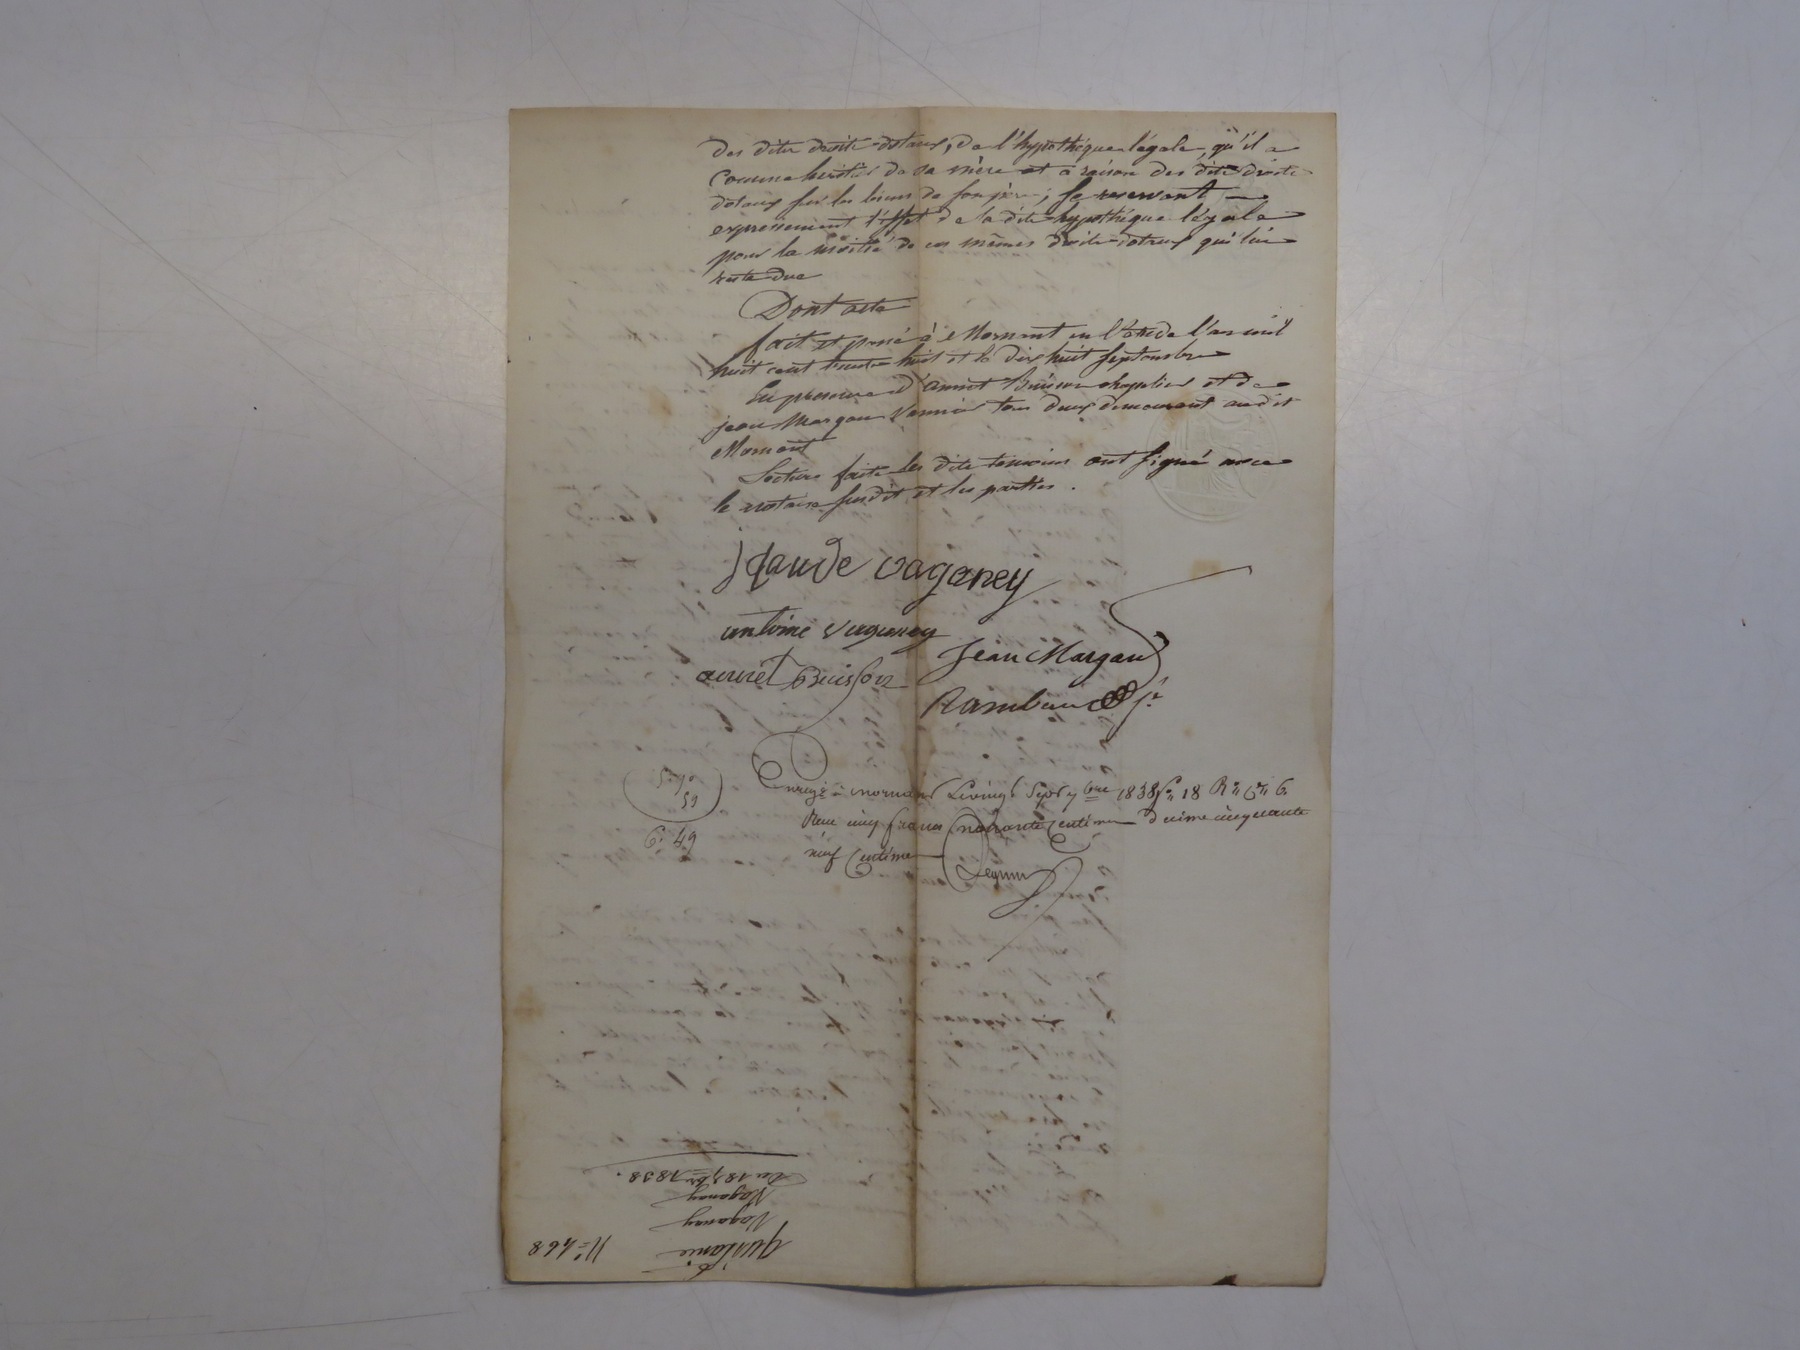 des dits droits dotaux, de l'hypothèque légale, qu'il a
comme héritier de sa mère et à raison des dits droits
dotaux sur les biens de son père; se reservant
expressement l'effet de la dite hypothèque légale
pour la moitié de ces mêmes droits dotaux qui lui
reste due
Dont acte
fait et passé à Mornant en l'étude l'an mil
huit cent trente huit et le dix huit septembre
En presence d'annet Buisson chapelier et de
jean Margaud tous deux demeurant audit
Mornant
Lecture faite les dits temoins ont signé avec
le notaire susdit et les parties.
Claude vaganey
antoine vaganey
Jean Margaud
annet Buisson
Rambaud
Enregé à mornant le vingt Sept 7bre 1838 fo 18 Ro Ce 6
Reçu cinq francs nonante centimes decime cinquante
neuf centimes
5. 90
59
6. 49
No 468
quittance
Vaganay
Vaganay
du 18 7bre 1838.